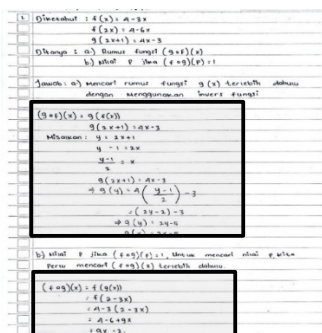 1 Diketahui : f(x) = 4-3x
f(2x) = 4-6x
g(2x+1) = 4x-3
Ditanya : a.) Rumus fungsi (g∘f)(x)
b.) Nilai P jika (f∘g)(P) = 1
Jawab : a) Mencari rumus fungsi g(x) terlebih dahulu
dengan menggunakan invers fungsi
(g∘f)(x) = g(f(x))
g(2x+1) = 4x-3
Misalkan : y = 2x+1
y - 1 = 2x
y-1/2 = x
g(2x+1) = 4x-3
→ g(y) = 4(y-1/2) - 3
= (2y-2) - 3
→ g(y) = 2y-5
b) Nilai P jika (f∘g)(P) = 1, Untuk mencari nilai P, kita
perlu mencari (f∘g)(x) terlebih dahulu.
(f∘g)(x) = f(g(x))
= f(2-3x)
= 4-3(2-3x)
= 4-6+9x
= 9x-2.